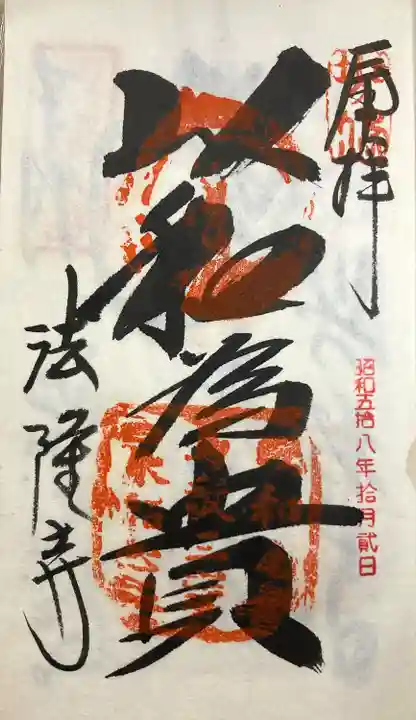 奉拝
昭和五拾八年拾月貳日
以和為貴
法隆寺